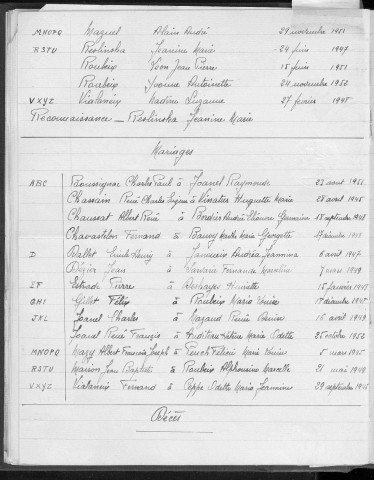 MNOPQ Mazuel Alain André 29 novembre 1951
RSTU Reslinska Jeanine Marie 24 juin 1947
Roubeix Léon Jean Pierre 15 juin 1951
Roubeix Yvonne Antoinette 24 novembre 1952
VXYZ Vialaneix Nadine Suzanne 27 février 1948
Reconnaissance _ Reslinska Jeanine Marie
Mariages
ABC Charles Paul à Joanel Raymonde 1951
Chassain René Charles Eugène à Huguette Maria 28 avril 1945
Chaussat Albert René à Bordier Eléonore Germaine 18 septembre 1948
Chavastelon Fernand à Marthe Marie Georgette
D Ballot Emile Henry à Andréa Jeannine 6 avril 1947
Jean à Fernande 7 mai 1949
EF Estrade Pierre à Deshayes Henriette 15 janvier 1948
GHI Gillet Félix à Roubeix Maria
JKL Joanel Charles à Mazaud Renée Denise 16 avril 1949
Joanel René François à Marie Odette 25 octobre 1952
MNOPQ Mazy Albert Francis Joseph à Marie 5 mai 1945
RSTU Masson Jean Baptiste à Roubeix Alphonsine Marcelle 21 mai 1949
VXYZ Vialaneix Fernand à Peppe Odette Marie Jeannine 29 septembre 1945
Décès